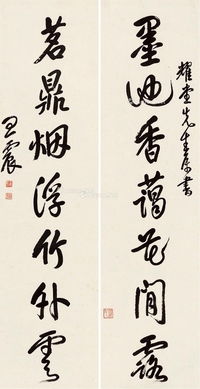 耀堂先生属書
墨池香藹花間露
茗鼎烟浮竹外雲
王震